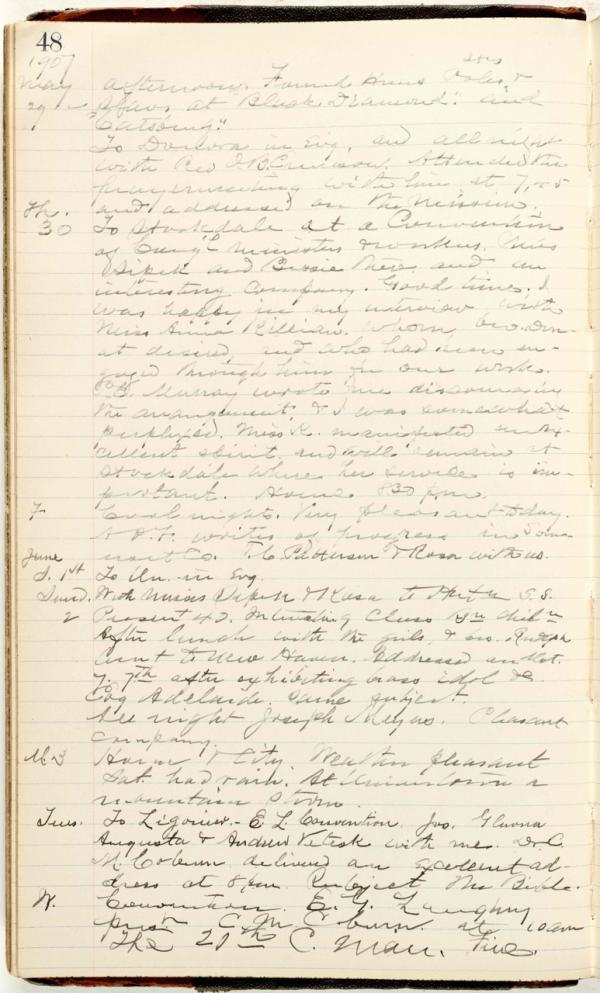 48
1907
May afternoon. Found Huns Poles &
29 Slavs at "Black Diamond" and
"Catsburg."
To Donora in Evg, and all night
with Rev O.B. Attended the
prayermeeting with him at 7,45
Th. and addressed on the Mission.
30 To Stockdale at a Convention
of Cong'l ministers & workers. Miss
Sipek and Bessie and an
interesting company. Good time. I
was happy in my interview with
Miss Anna Killian. whom bro. Don-
at desired, and who had been en-
gaged through him for our work.
Murray wrote me discouraging
the arrangement, & I was somewhat
perplexed. Miss K. manifested an ex-
cellent spirit and will remain at
Stockdale where her service is im-
portant. Home 830 pm.
F Cool night. Very pleasant today.
writes of progress in Some-
June rset Co. Patterson & Rosa with us.
S. 1st To Un. in Evg.
Sund. With Misses Sipek & Rosa to S.S.
2 Present 42. Interesting Class
After lunch with the girls, & bro.
went to New Haven. Addressed on
7th after exhibiting brass idol &c
Evg Adelaide. Same subject.
All night Joseph Pleasant
company.
M 3 Home & City. Weather pleasant
Sat. had rain. At Uniontown a
mountain storm.
Tues. To Ligonier - E L Convention. Jos.
Augusta & Andrew with me. Dr. C.
M Coburn delivered an excellent ad-
dress at 8 pm. Subject The Bible.
W. Convention. E. Y.
C. M. Coburn. at 10 am
The 20th C. Man. Fine.